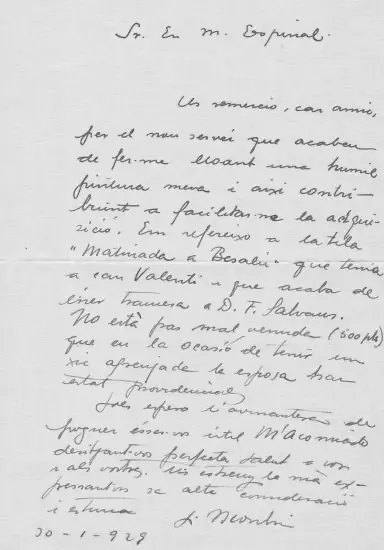 Sr. En M. Espinal.
Us remercio, car amic,
per el nou servei que acabeu
de fer-me lloant una humil
pintura meva i així contri-
buint a facilitar-ne la adqui-
sició. Em refereixo a la tela
"Matinada a Besalú" que tenia
a can Valentí i que acaba de
ésser tramesa a D. F. Salvans.
No està pas mal venuda (500 pts)
que en la ocasió de tenir un
xic apreujada la esposa han
estat providencials
poguer ésser-vos útil M'acomiado
desitjant-vos perfecta salut a vos
i als vostres. Us estreny la mà ex-
pressant-vos sa alta consideració
i estima
30-1-929